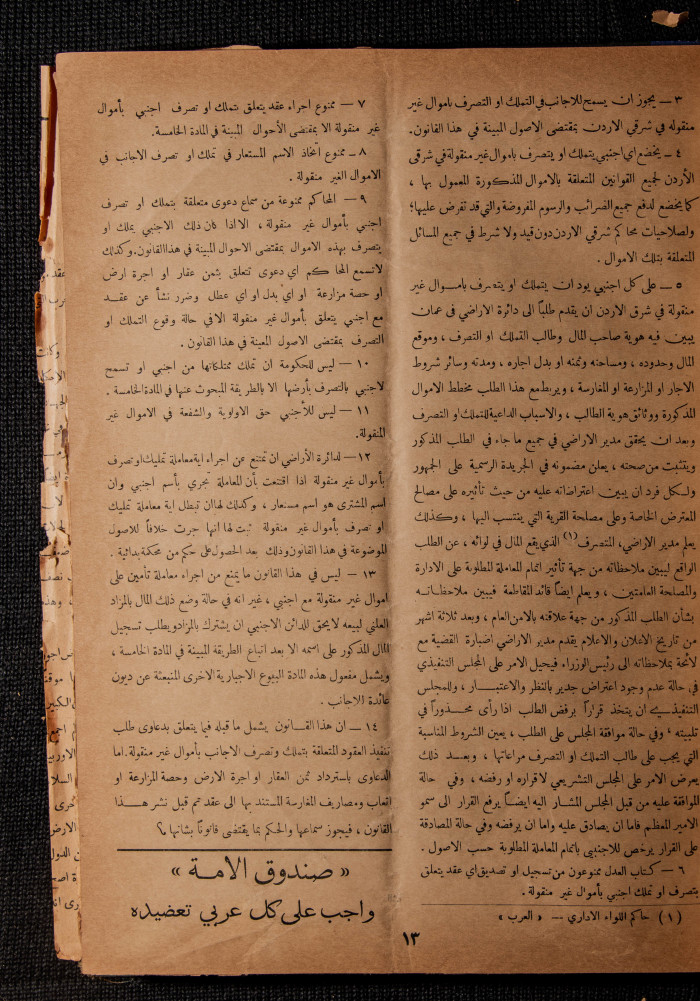 ٣ — يجوز ان يسمح للاجانب في التملك او التصرف باموال غير
منقوله في شرقي الاردن بمقتضى الاصول المبينة في هذا القانون.
٤ — يخضع اي اجنبي يتملك او يتصرف باموال غير منقولة في شرقي
الأردن لجميع القوانين المتعلقة بالاموال المذكورة المعمول بها ،
كما يخضع لدفع جميع الضرائب والرسوم المفروضة والتي قد تفرض عليها؛
ولصلاحيات محاكم شرقي الاردن دون قيد ولا شرط في جميع المسائل
المتعلقة بتلك الاموال .
٥ — على كل اجنبي يود ان يتملك او يتصرف باموال غير
منقولة في شرق الاردن ان يقدم طلباً الى دائرة الاراضي في عمان
يبين فيه هوية صاحب المال وطالب التملك او التصرف ، وموقع
المال وحدوده ، ومساحته وثمنه او بدل اجاره ، ومدته وسائر شروط
الاجار او المزارعة او المغارسة ، ويربط مع هذا الطلب مخطط الاموال
المذكورة ووثائق هوية الطالب ، والاسباب الداعية للتملك او التصرف
وبعد ان يحقق مدير الاراضي في جميع ما جاء في الطلب المذكور
ويتثبت من صحته ، يعلن مضمونه في الجريدة الرسمية على الجمهور
ولكل فرد ان يبين اعتراضاته عليه من حيث تأثيره على مصالح
المعترض الخاصة وعلى مصلحة القرية التي ينتسب اليها ، وكذلك
يعلم مدير الاراضي، المتصرف (١) الذي يقع المال في لوائه ، عن الطلب
الواقع ليبين ملاحظاته من جهة تأثير اتمام المعاملة المطلوبة على الادارة
والمصلحة العامتين ، ويعلم ايضاً قائد المقاطعة فيبين ملاحظاته
بشأن الطلب المذكور من جهة علاقته بالامن العام ، وبعد ثلاثة اشهر
من تاريخ الاعلان والاعلام يقدم مدير الاراضي اضبارة القضية مع
لائحة بملاحظاته الى رئيس الوزراء فيحيل الامر على المجلس التنفيذي
في حالة عدم وجود اعتراض جدير بالنظر والاعتبار ، وللمجلس
التنفيذي ان يتخذ قراراً برفض الطلب اذا رأى محذوراً في
تلبيته ، وفي حالة موافقة المجلس على الطلب ، يعين الشروط المناسبة
التي يجب على طالب التملك او التصرف مراعاتها ، وبعد ذلك
يعرض الامر على المجلس التشريعي لاقراره او رفضه ، وفي حالة
الموافقة عليه من قبل المجلس المشار اليه ايضاً يرفع القرار الى سمو
الامير المعظم فاما ان يصادق عليه واما ان يرفضه وفي حالة المصادقة
على القرار يرخص للاجنبي باتمام المعاملة المطلوبة حسب الاصول .
٦ — كتاب العدل ممنوعون من تسجيل او تصديق اي عقد يتعلق
بتصرف او تملك اجنبي بأموال غير منقولة .
(١) حاكم اللواء الاداري — « العرب »
٧ — ممنوع اجراء عقد يتعلق بتملك او تصرف اجنبي بأموال
غير منقولة الا بمقتضى الأحوال المبينة في المادة الخامسة.
٨ — ممنوع اتخاذ الاسم المستعار في تملك او تصرف الاجانب في
الاموال الغير منقولة .
٩ — المحاكم ممنوعة من سماع دعوى متعلقة بتملك او تصرف
اجنبي بأموال غير منقولة ، الا اذا كان ذلك الاجنبي يملك او
يتصرف بهذه الاموال بمقتضى الاحوال المبينة في هذا القانون. وكذلك
لاتسمع المحاكم اي دعوى تتعلق بثمن عقار او اجرة ارض
او حصة مزارعة او اي بدل او اي عطل وضرر نشأ عن عقد
مع اجنبي يتعلق بأموال غير منقولة الا في حالة وقوع التملك او
التصرف بمقتضى الاصول المعينة في هذا القانون .
١٠ — ليس للحكومة ان تملك ممتلكاتها من اجنبي او تسمح
لاجنبي بالتصرف بأرضها الا بالطريقة المبحوث عنها في المادة الخامسة .
١١ — ليس للأجنبي حق الاولوية والشفعة في الاموال غير
المنقولة.
١٢ — لدائرة الأراضي ان تمتنع عن اجراء اية معاملة تمليك او تصرف
بأموال غير منقولة اذا اقتنعت بأن المعاملة تجري بأسم اجنبي وان
اسم المشتري هو اسم مستعار ، وكذلك لها ان تبطل اية معاملة تمليك
او تصرف بأموال غير منقولة ثبت لها انها جرت خلافاً للاصول
الموضوعة في هذا القانون وذلك بعد الحصول على حكم من محكمة بدائية .
١٣ — ليس في هذا القانون ما يمنع من اجراء معاملة تأمين على
اموال غير منقولة مع اجنبي ، غير انه في حالة وضع ذلك المال بالمزاد
العلني لبيعه لا يحق للدائن الاجنبي ان يشترك بالمزاد ويطلب تسجيل
المال المذكور على اسمه الا بعد اتباع الطريقة المبينة في المادة الخامسة ،
ويشمل مفعول هذه المادة البيوع الاجبارية الاخرى المنبعثة عن ديون
عائدة الاجانب .
١٤ — ان هذا القانون يشمل ما قبله فيما يتعلق بدعاوى طلب
تنفيذ العقود المتعلقة بتملك وتصرف الاجانب بأموال غير منقولة. اما
الدعاوى باسترداد ثمن العقار او اجرة الارض وحصة المزارعة او
اتعاب ومصاريف المغارسة المستند بها الى عقد تم قبل نشر هذا
القانون ، فيجوز سماعها والحكم بما يقتضى قانوناً بشانها ؟
« صندوق الامة »
واجب على كل عربي تعضيده
١٣